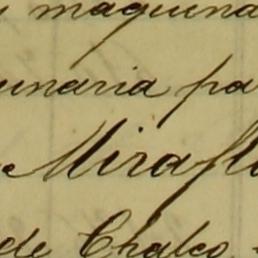 maquina
unaria pa
Miraflo
de Chalco